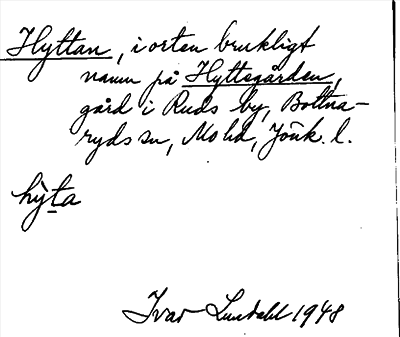 Hyttan, i orten brukligt
namn på Hyttegården,
gård i Ruds by, Bottna-
ryds sn, Mo hd, Jönk. l.
hy̆ta
Ivar Lundahl 1948